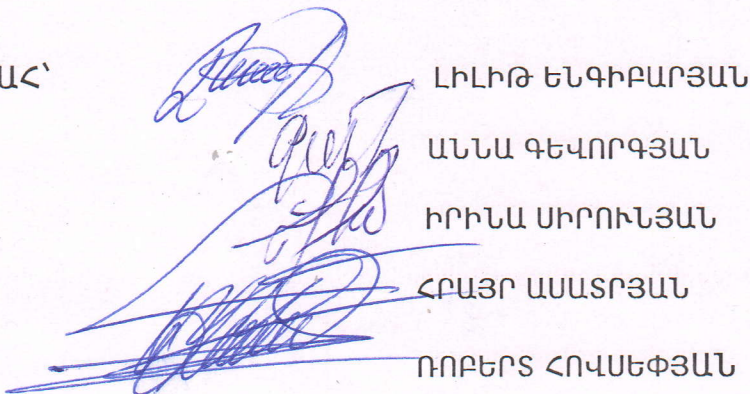 ԱՀ՝ ԼԻԼԻԹ ԵՆԳԻԲԱՐՅԱՆ
ԱՆՆԱ ԳԵՎՈՐԳՅԱՆ
ԻՐԻՆԱ ՍԻՐՈՒՆՅԱՆ
ՀՐԱՅՐ ԱՍԱՏՐՅԱՆ
ՌՈԲԵՐՏ ՀՈՎՍԵՓՅԱՆ